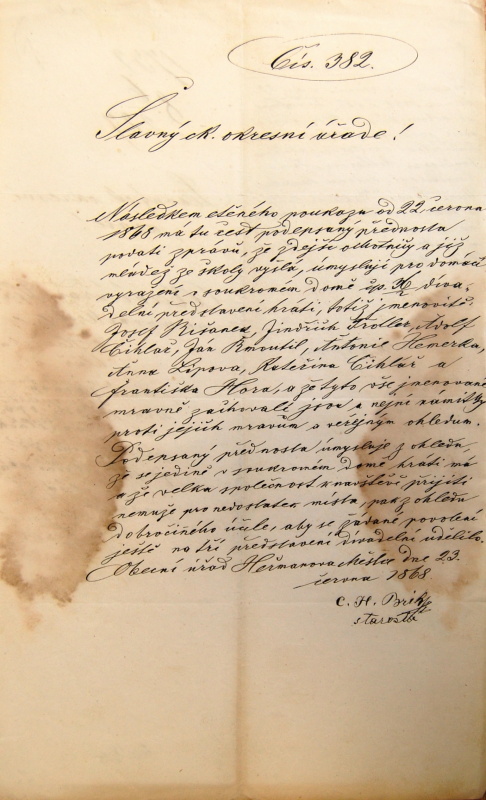 Čís. 382.
Slavný ck. okresní úřade!
Následkem ctěného poukazu od 22 června
1868 má tu čest podepsaný přednosta
podati zprávu, že zdejší ochotníci a již
mládež ze školy vyšlá, úmyslují pro domácí
vyražení v soukromém domě čp. diva-
delní představení hráti, totiž jmenovitě
Josef Jindřich Adolf
Cihlář, Ján Kmoutil, Antonie Nemerka,
Anna Lipova, Kateřina Cihlář a
Františka Hora, a že tyto vše jmenované
mravně zachovalí jsou a nejní namitky
proti jejich mravům a veřejným ohledum.
Podepsaný přednosta úmysluje z ohledu
že se jedině v soukromém domě hráti má
a že velka společnost k navštěvě přijíti
nemuže pro nedostatek místa, pak z ohledu
dobročiného účele, aby se žádané povolení
ještě na tři představení divadelní udělilo.
Obecní úřad Hermanova Městce dne 23.
června 1868
C. H.
starosta